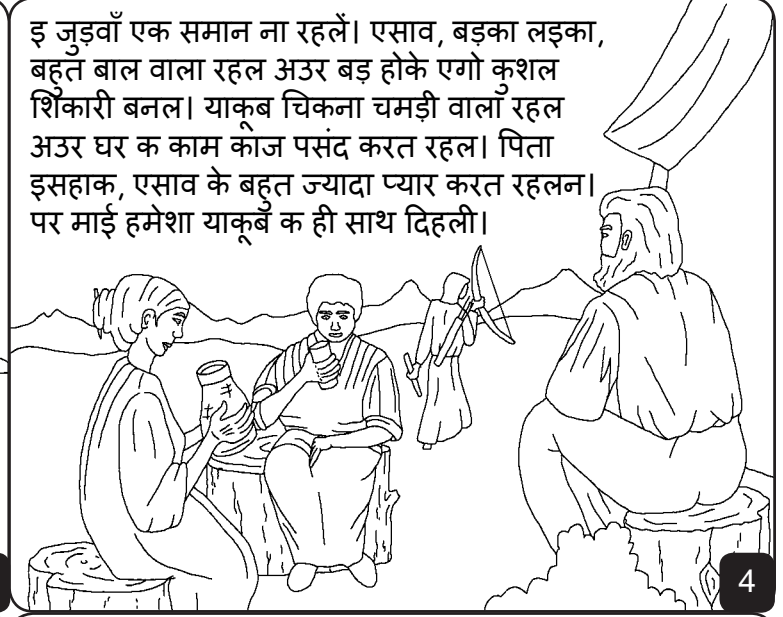 इ जुड़वाँ एक समान ना रहलें। एसाव, बड़का लइका,
बहुत बाल वाला रहल अउर बड़ होके एगो कुशल
शिकारी बनल। याकूब चिकना चमड़ी वाला रहल
अउर घर क काम काज पसंद करत रहल। पिता
इसहाक, एसाव के बहुत ज्यादा प्यार करत रहलन।
पर माई हमेशा याकूब क ही साथ दिहली।
4